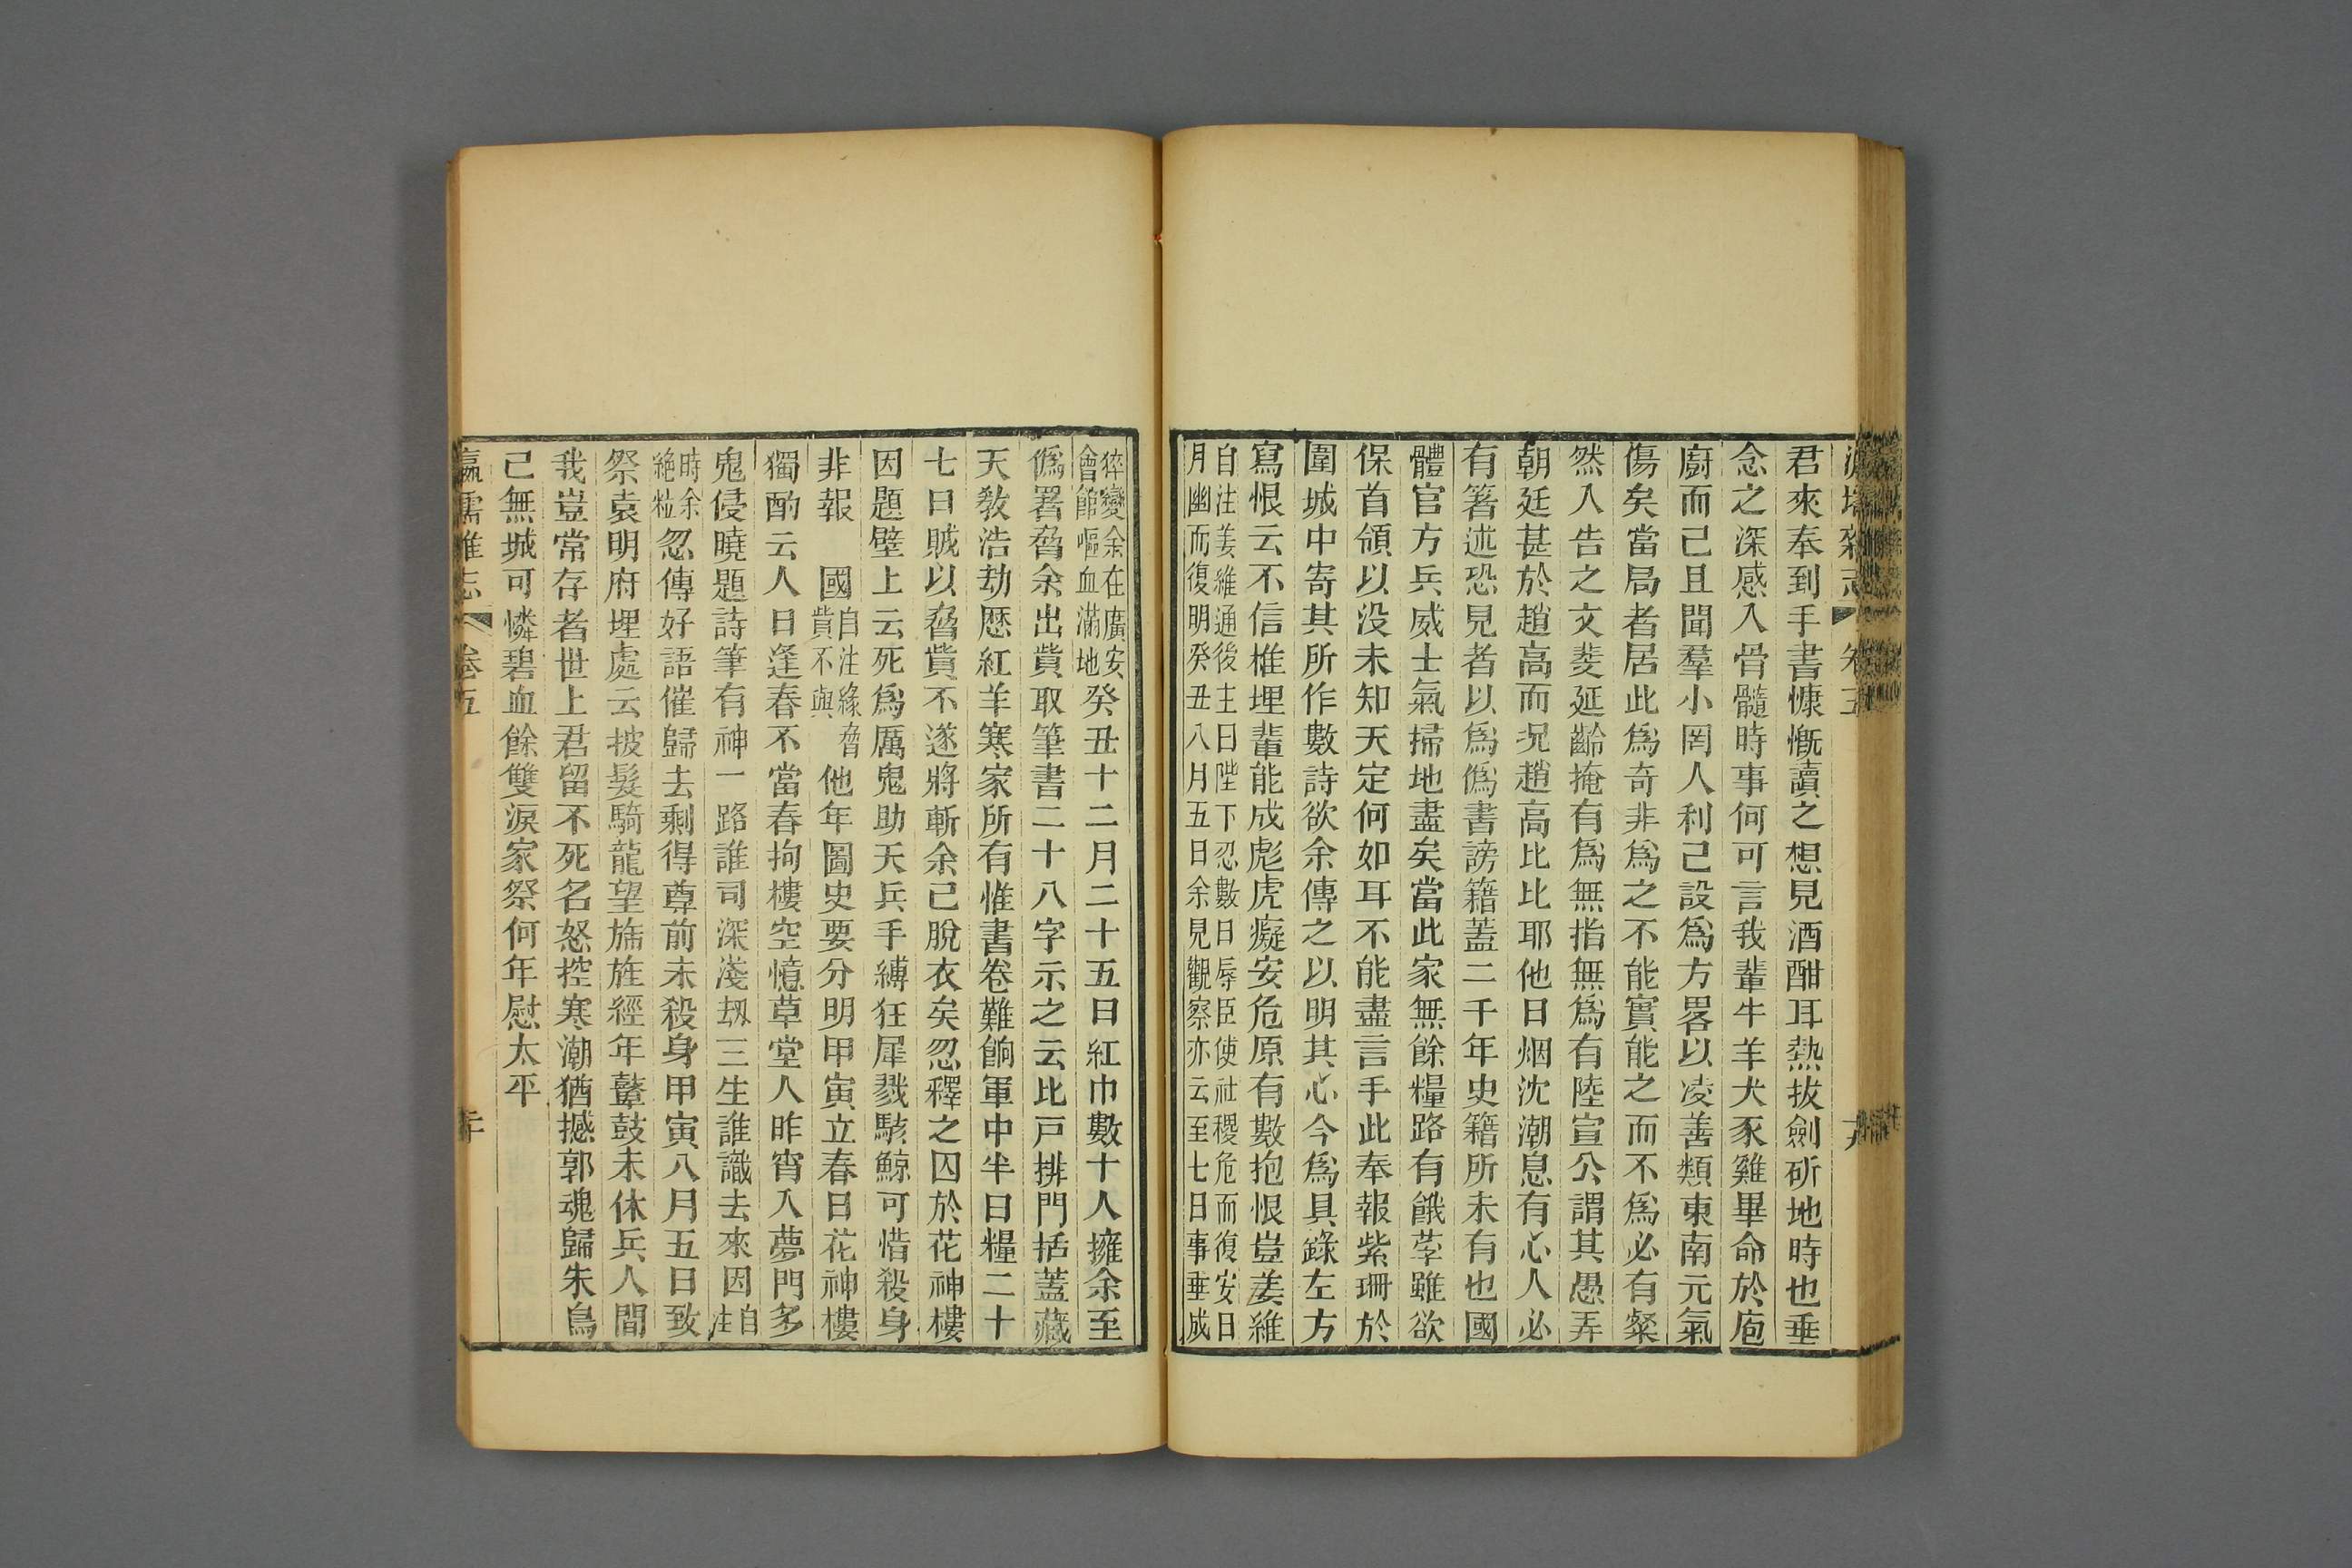 君來奉到手書慷慨讀之想見酒酣耳熱拔劍斫地時也垂
念之深感入骨髓時事何可言我輩牛羊犬豕雞畢命於庖
廚而已且聞羣小罔人利己設爲方畧以凌善類東南元氣
傷矣當局者居此爲奇非爲之不能實能之而不爲必有粲
然入告之文斐延齡掩有爲無指無爲有陸宣公謂其愚弄
朝廷甚於趙高而況趙高比比耶他日烟沈潮息有心人必
有箸述恐見者以爲僞書謗籍蓋二千年史籍所未有也國
體官方兵威士氣掃地盡矣當此家無餘糧路有餓莩雖欲
保首領以没未知天定何如耳不能盡言手此奉報紫珊於
圍城中寄其所作數詩欲余傳之以明其心今爲具錄左方
寫恨云不信椎埋輩能成彪虎癡安危原有數抱恨豈姜維
自注姜維通後主曰陛下忍數日辱臣使社稷危而復安日
月幽而復明癸丑八月五日余見觀察亦云至七日事垂成
猝變余在廣安
會館嘔血滿地癸丑十二月二十五日紅巾數十人擁余至
僞署脅余出貲取筆書二十八字示之云比戸排門括蓋藏
天教浩劫歷紅羊寒家所有惟書卷難餉軍中半日糧二十
七日賊以脅貲不遂將斬余已脫衣矣忽釋之囚於花神樓
因題壁上云死爲厲鬼助天兵手縛狂犀戮駭鯨可惜殺身
非報　國自注緣脅貲不與他年圖史要分明甲寅立春日花神樓
獨酌云人日逢春不當春拘樓空憶草堂人昨宵入夢門多
鬼侵曉題詩筆有神一路誰司深淺刼三生誰識去來因自注
時余絶粒忽傳好語催歸去剩得尊前未殺身甲寅八月五日致
祭袁明府埋處云披髮騎龍望旆旌經年鼙鼓未休兵人間
我豈常存者世上君留不死名怒控寒潮猶撼郭魂歸朱鳥
已無城可憐碧血餘雙淚家祭何年慰太平
瀛壖雜志　卷五　二十